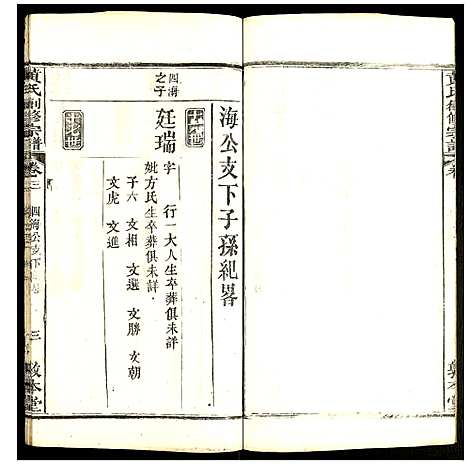 黃氏續修宗譜
海公支下子孫紀畧
四海之子
廷瑞
字 行一大人生卒葬俱未詳
妣方氏生卒葬俱未詳
子六 文相 文選 文勝 文朝
文虎 文進
黃氏續修宗譜 卷三
四海公支下
三
敦本堂
敦本堂